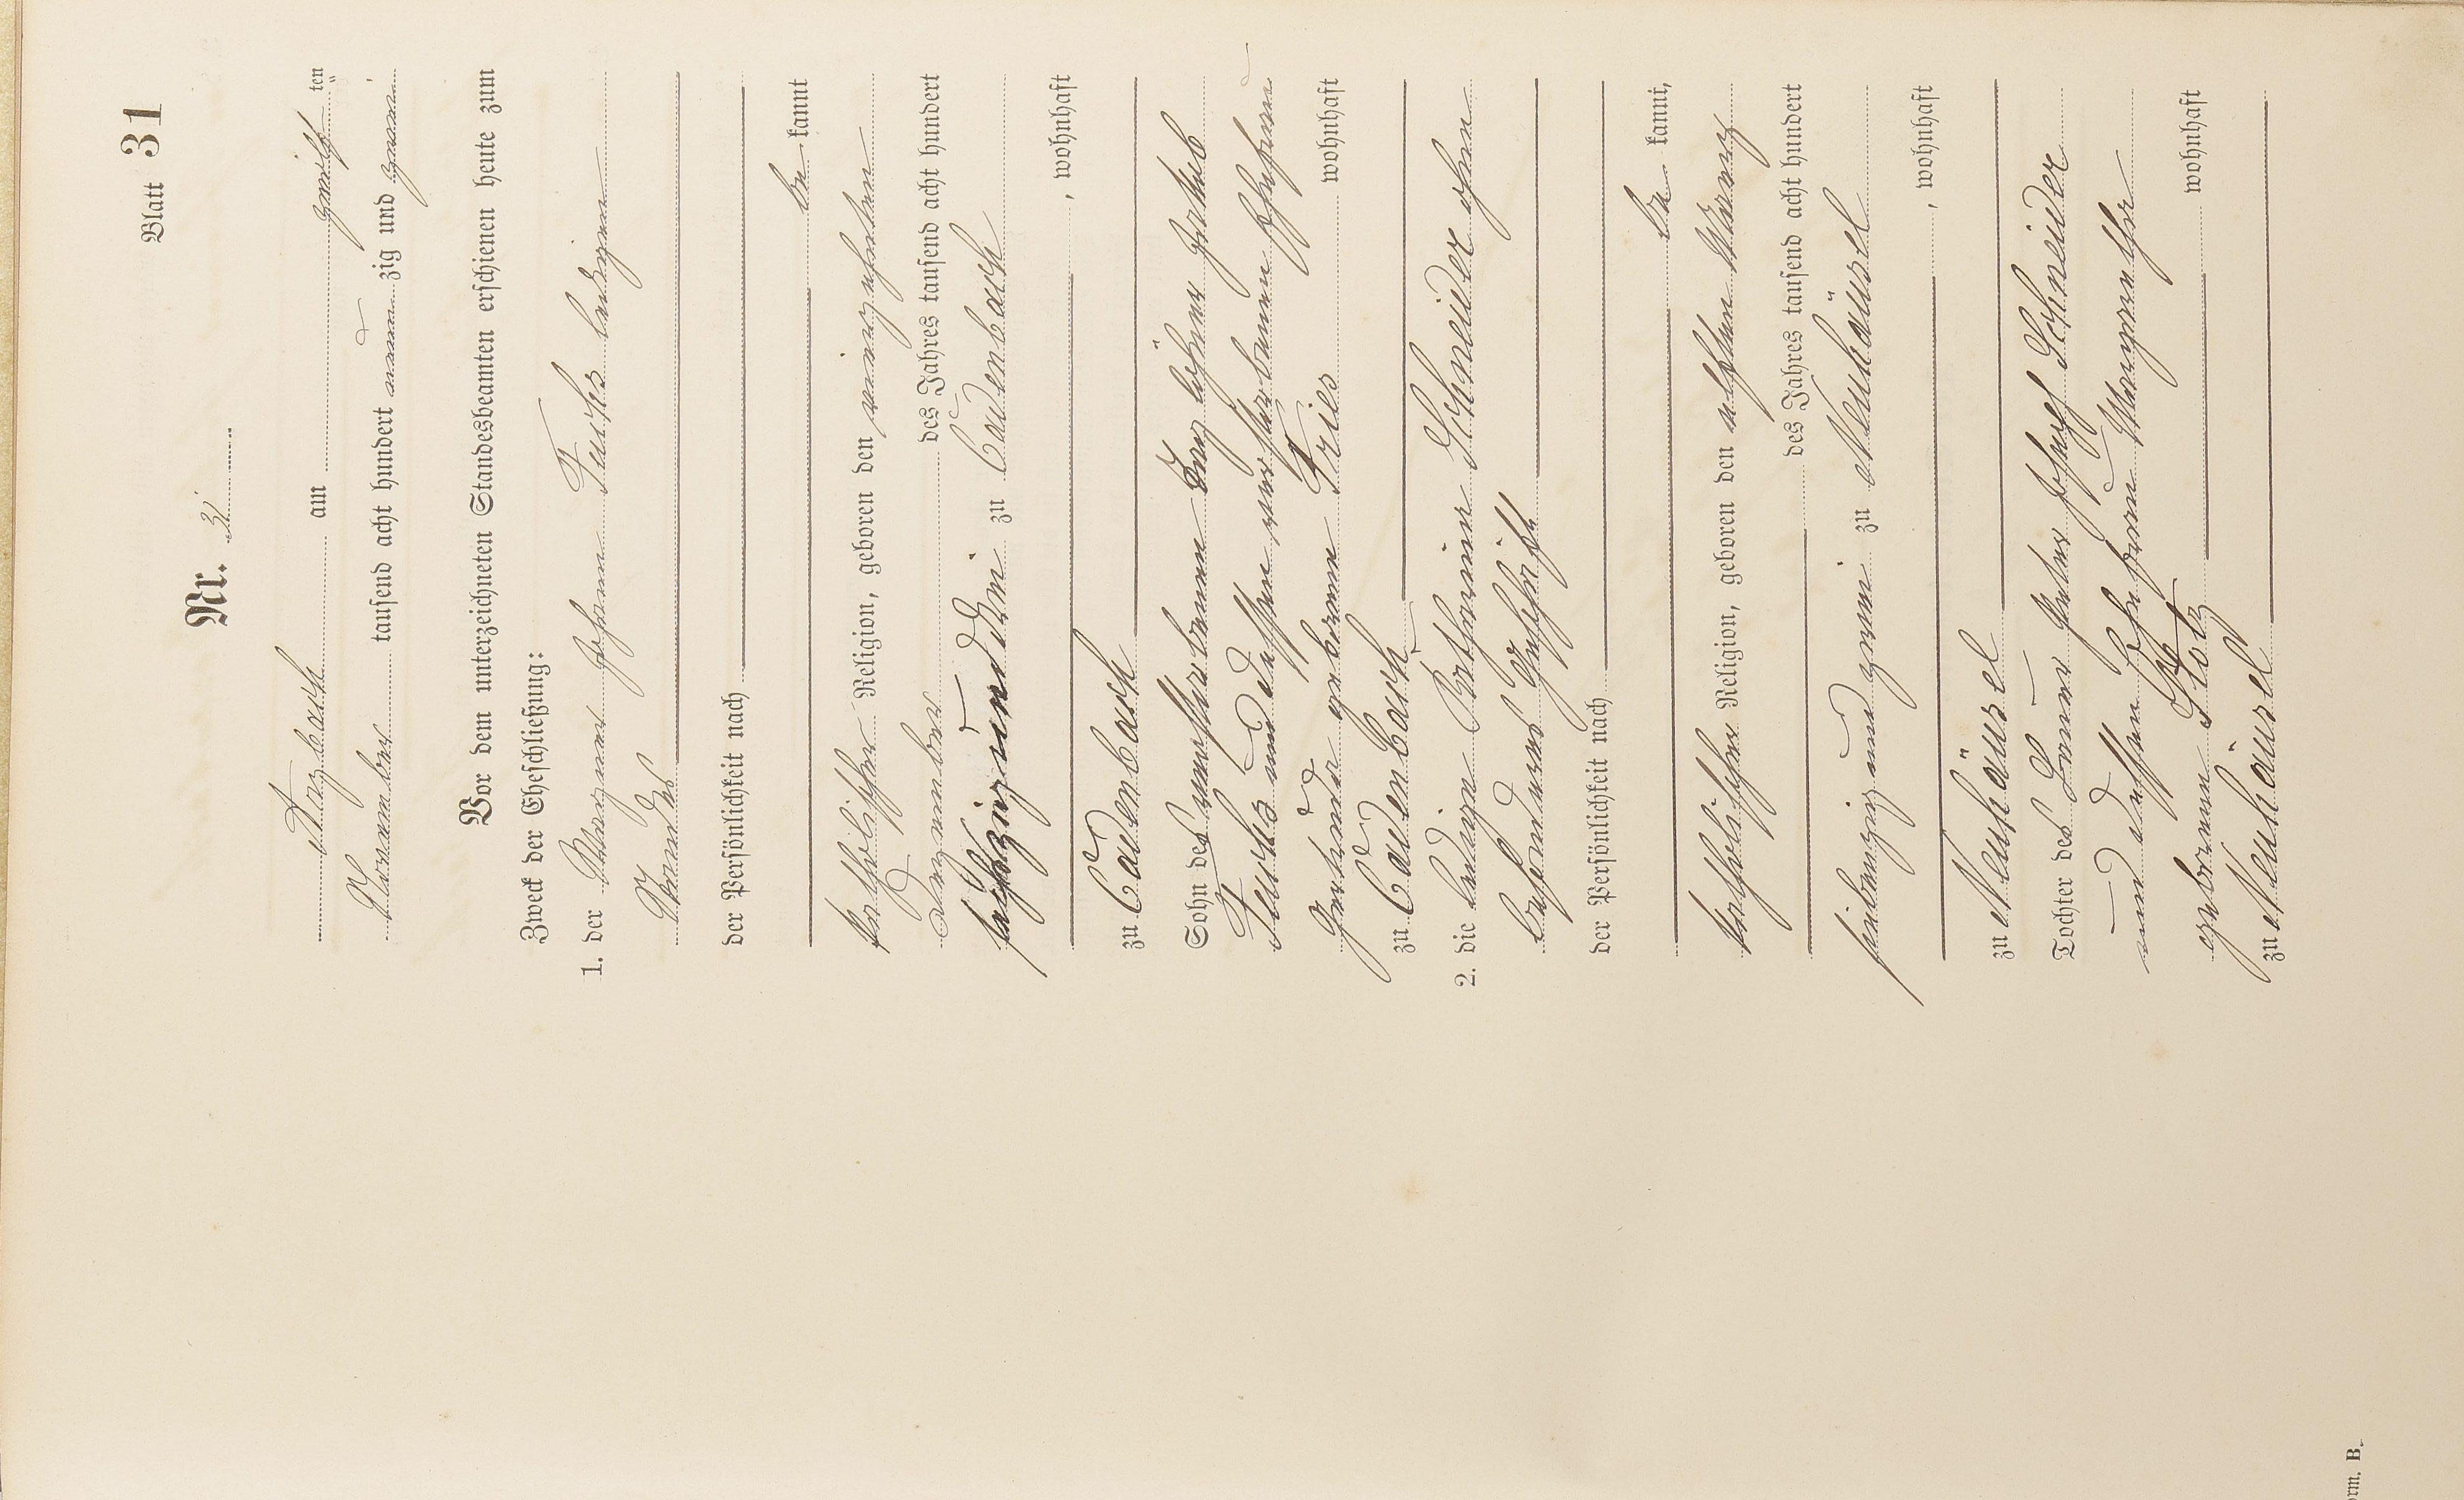 Blatt 31
Nr. 31.
Arzbach am zwölften
November tausend acht hundert neunzig und zwei
Vor dem unterzeichneten Standesbeamten erschienen heute zum
Zweck der Eheschließung:
1. der Johann Fuchs ledigen
Standes
der Persönlichkeit nach
be kannt
katholischer Religion, geboren den vierzehnten
Dezember des Jahres tausend acht hundert
sechzig und drei zu Cadenbach
, wohnhaft
zu Cadenbach
Sohn des verstorbenen Jakob
Fuchs und dessen verstorbenen Ehefrau
Gertrude geborene Fries wohnhaft
zu Cadenbach
2. die ledige Katharine Schneider ohne
besonderes Geschäft
der Persönlichkeit nach
be kannt,
katholischer Religion, geboren den elften März
des Jahres tausend acht hundert
siebenzig und zwei zu Neuhäusel
, wohnhaft
zu Neuhäusel
Tochter des Peter Josef Schneider
und dessen Ehefrau Margarethe
geborene Stotz wohnhaft
zu Neuhäusel
orm. B.